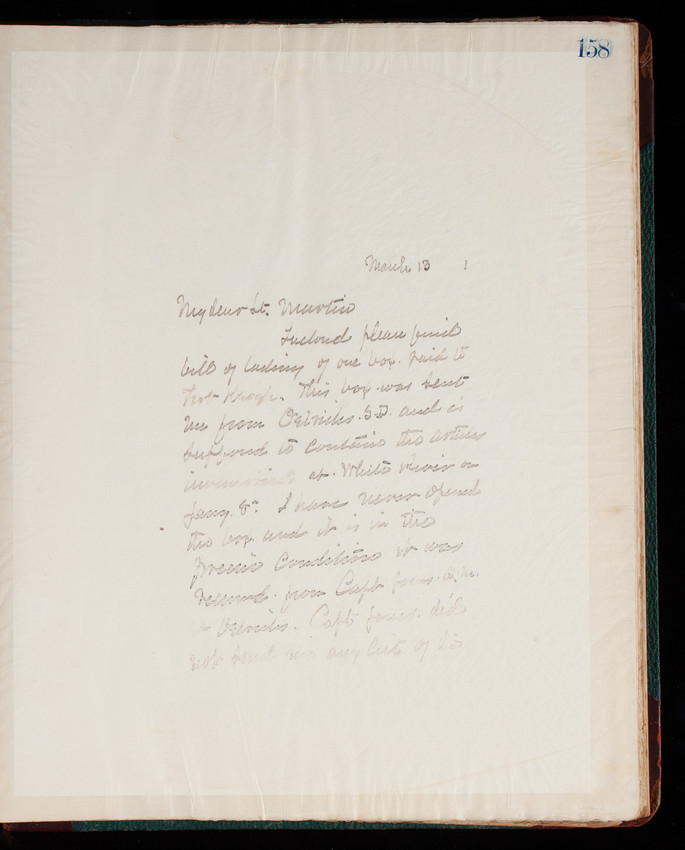 158
March 13 1
My dear Lt. Martin
Inclosed please find
bill of lading of one box. said to
Fort Keogh. This box was sent
me from Oelrichs. S.D. and is
supposed to contain the articles
inventoried at White River on
Jany. 8th. I have never opened
the box and it is in the
precise condition it was
received from Capt
Oelrichs. Capt did
not send me any list of